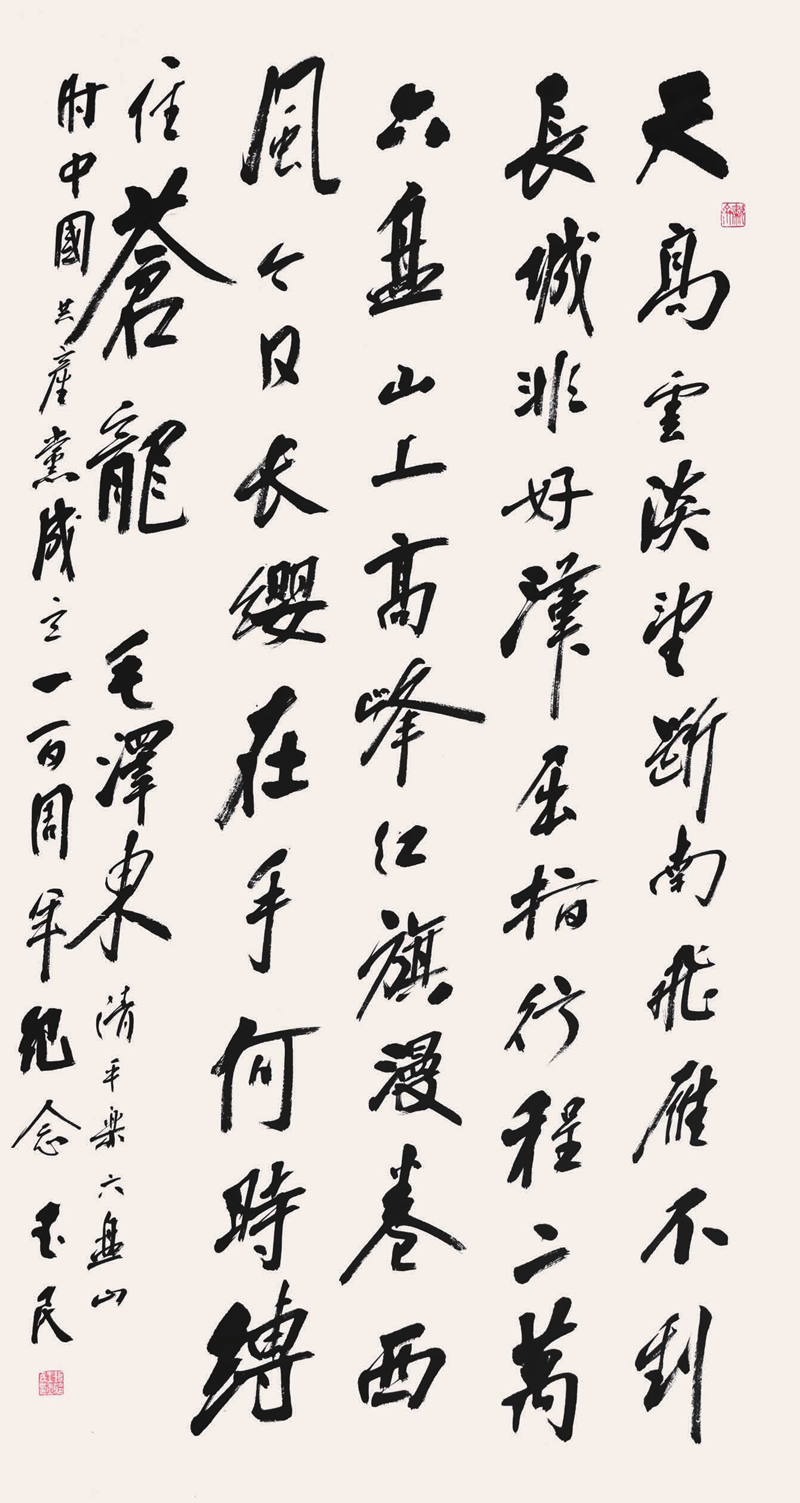 天高雲淡望斷南飛雁不到
長城非好漢屈指行程二萬
六盘山上高峰紅旗漫卷西
風今日长纓在手何時縛
住蒼龍 毛澤東 清平楽六盘山
时中國共產黨成立一百周年紀念 玉民